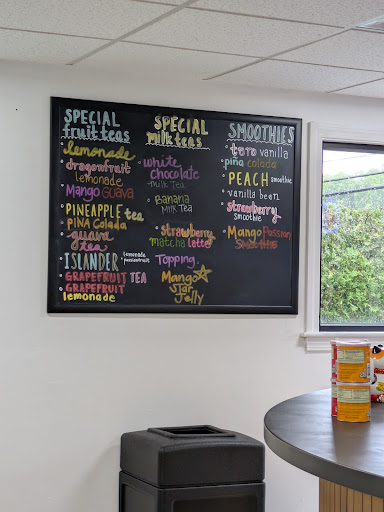 SPECIAL
fruit teas
lemonade
dragonfruit
lemonade
Mango Guava
PINEAPPLE tea
PINA Colada
guava
tea
ISLANDER
lemonade
passionfruit
GRAPEFRUIT TEA
GRAPEFRUIT
lemonade
SPECIAL
milk teas
white
chocolate
milk Tea
BANANA
MILK TEA
strawberry
matcha latte
Topping
Mango
STAR
Jelly
SMOOTHIES
taro vanilla
piña colada
PEACH smoothie
vanilla bean
strawberry
smoothie
Mango Passion
Smoothie